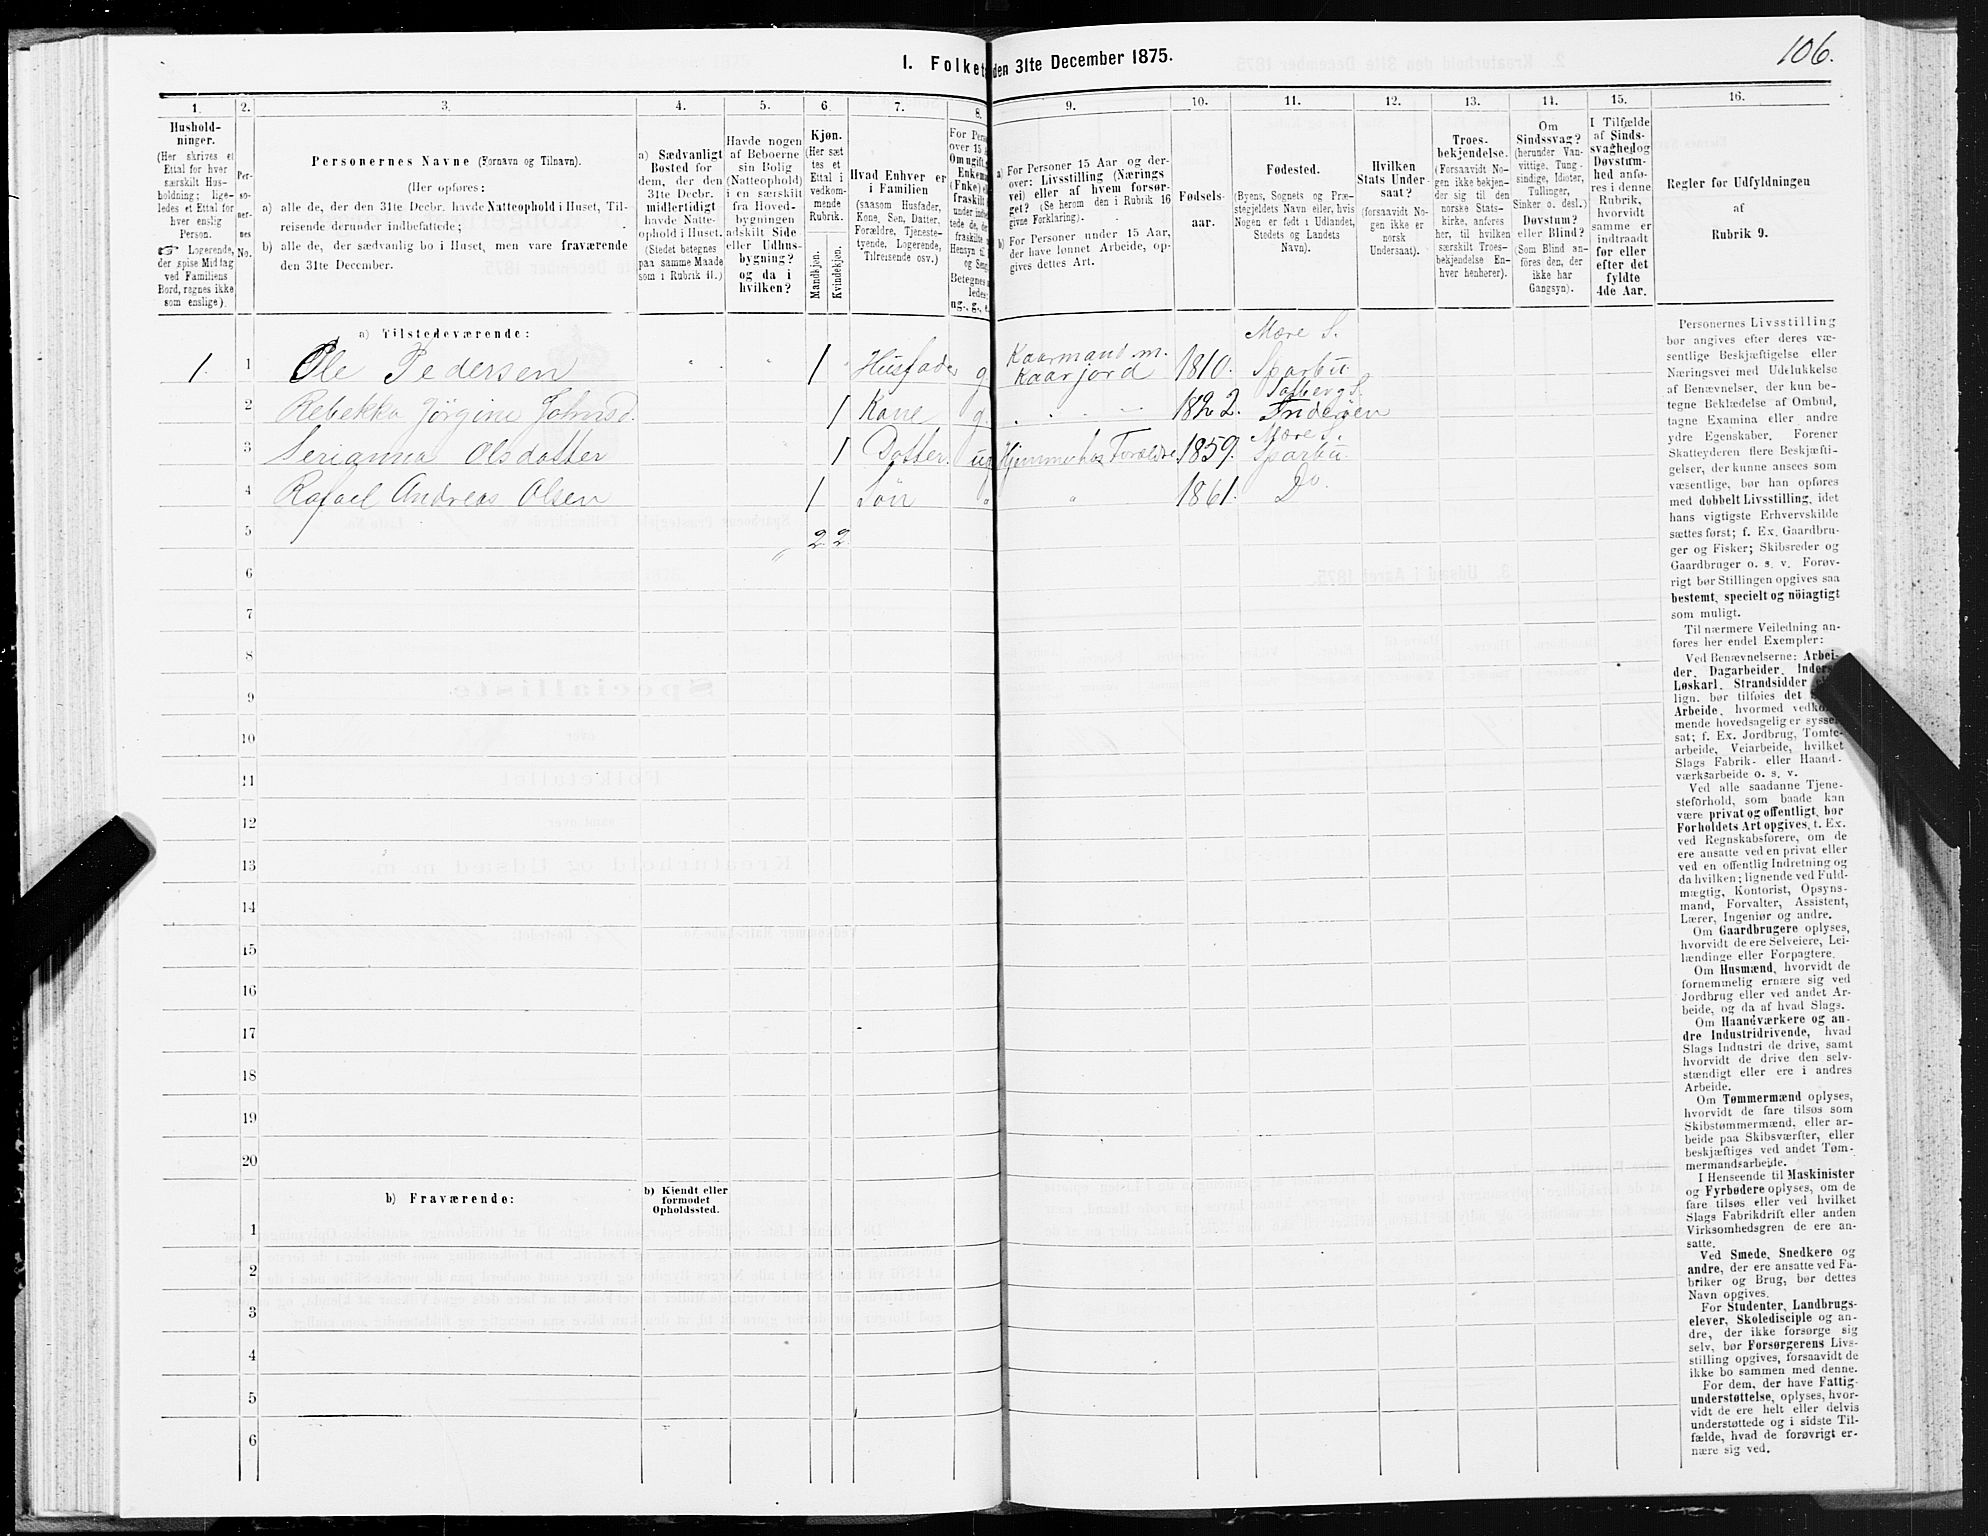 106.
I. Folket
den 31te December 1875.
1. 2. 3. 4. 5. 6. 7. 8. 9. 10. 11. 12. 13. 14. 15. 16.
Hushold-
ninger.
(Her skrives et
Ettal for hver
særskilt Hus-
holdning; lige-
ledes et Ettal for
hver enslig
Person.
☞ Logerende,
der spise Middag
ved Familiens
Bord, regnes ikke
som enslige).
Per-
so-
ner-
nes
No.
Personernes Navne (Fornavn og Tilnavn).
(Her opføres:
a) alle de, der den 31te Decbr. havde Natteophold i Huset, Til-
reisende derunder indbefattede;
b) alle de, der sædvanlig bo i Huset, men vare fraværende
den 31te December.
a) Sædvanligt
Bosted for
dem, der den
31te Decbr.
midlertidigt
havde Natte-
ophold i Huset.
(Stedet betegnes
paa samme Maade
som i Rubrik 11.)
Havde nogen
af Beboerne
sin Bolig
(Natteophold)
i en særskilt
fra Hoved-
bygningen
adskilt Side
eller Udhus-
bygning?
og da i
hvilken?
Kjøn.
(Her sæt
tes et
Ettal i
vedkom-
mende
Rubrik.
Mandkjøn.
Kvindekjøn.
Hvad Enhver er
i Familien
(saasom Husfader,
Kone, Søn, Datter,
Forældre, Tjeneste-
tyende, Logerende,
Tilreisende osv.)
For Pers
over 15
Om ugift,
Enkem
(Fnke)
fraskilt
under indbe
tede de,
fraskilte
Hensyn til
og Seng
Betegnes
ledes:
ug., g., e.
a) For Personer 15 Aar og der-
over: Livsstilling (Nærings
vei) eller af hvem forsør-
get? (Se herom den i Rubrik 16
givne Forklaring).
b) For Personer under 15 Aar,
der have lønnet Arbeide, op-
gives dettes Art.
Fødsels-
aar.
Fødested.
(Byens, Sognets og Præ-
stegjeldets Navn eller, hvis
Nogen er født i Udlandet,
Stedets og Landets
Navn).
Hvilken
Stats Under-
saat?
(forsaavidt No-
gen ikke er
norsk
Undersaat).
Troes-
bekjendelse.
(Forsaavidt No-
gen ikke bekjen-
der sig til den
norske Stats-
kirke, anføres
her, til hvilken
særskilt Troes-
bekjendelse En-
hver henhører).
Om
Sindssvag?
(herunder Van-
vittige, Tung-
sindige, Idioter,
Tullinger,
Sinker o. desl.)
Døvstum?
eller Blind?
(Som Blind an-
føres den, der
ikke har
Gangsyn).
I Tilfælde
af Sinds-
svaghed og
Døvstum-
hed anfø-
res i denne
Rubrik,
hvorvidt
samme er
indtraadt
før eller
efter det
fyldte
4de Aar.
Regler for Udfyldningen
af
Rubrik 9.
a) Tilstedeværende:
1. 1 Ole Pedersen " " 1 " Husfader g Kaarmand m. Kaarjord 1810. Mære S. Sparbu
2 Rebekka Jørgine Johnsd. 1 Kone g. " " " 1822. Salberg S. Inderøen
3 Serianna Olsdatter 1 Datter. ug Hjemme hos Forældre 1859. Mære S. Sparbu.
4 Rafael Andreas Olsen 1 Søn " " 1861. Do.
5 2 2
6
7
8
9
10
11
12
13
14
15
16
17
18
19
20
b) Fraværende:
b) Kjendt eller
formodet
Opholdssted.
1
2
3
4
5
6
Personernes Livsstilling
bør angives efter deres væ-
sentlige Beskjæftigelse eller
Næringsvei med Udelukkelse
af Benævnelser, der kun be-
tegne Beklædelse af Ombud,
tagne Examina eller andre
ydre Egenskaber. Forener
Skatteyderen flere Beskjæfti-
gelser, der kunne ansees som
væsentlige, bør han opføres
med dobbelt Livsstilling, idet
hans vigtigste Erhvervskilde
sættes først; f. Ex. Gaardbru-
ger og Fisker; Skibsreder og
Gaardbruger o. s. v. Forøv-
rigt bør Stillingen opgives saa
bestemt, specielt og nöiagtigt
som muligt.
Til nærmere Veiledning an-
føres her endel Exempler:
Ved Benævnelserne: Arbei-
der, Dagarbeider, Inders
Løskarl, Strandsidder
lign. bør tilføies det
Arbeide, hvormed vedkom
mende hovedsagelig er syssel
sat; f. Ex. Jordbrug, Tomte-
arbeide, Veiarbeide, hvilket
Slags Fabrik- eller Haand-
værksarbeide o. s. v.
Ved alle saadanne Tjene-
steforhold, som baade kan
være privat og offentligt, bør
Forholdets Art opgives, t. Ex.
ved Regnskabsførere, om de
ere ansatte ved en privat eller
ved en offentlig Indretning og
da hvilken; lignende ved Fuld-
mægtig, Kontorist, Opsyns-
mand, Forvalter, Assistent,
Lærer, Ingeniør og andre.
Om Gaardbrugere oplyses,
hvorvidt de ere Selveiere, Lei-
lændinge eller Forpagtere.
Om Husmænd, hvorvidt de
fornemmelig ernære sig ved
Jordbrug eller ved andet Ar-
beide, og da af hvad Slags.
Om Haandværkere og an-
dre Industridrivende, hvad
Slags Industri de drive, samt
hvorvidt de drive den selv-
stændigt eller ere i andres
Arbeide.
Om Tømmermænd oplyses,
hvorvidt de fare tilsøs som
Skibstømmermænd, eller ar-
beide paa Skibsværfter, eller
beskjæftiges ved andet Tøm-
mermandsarbeide.
I Henseende til Maskinister
og Fyrbødere oplyses, om de
fare tilsøs eller ved hvilket
Slags Fabrikdrift eller anden
Virksomhedsgren de ere an-
satte.
Ved Smede, Snedkere og
andre, der ere ansatte ved Fa-
briker og Brug, bør dettes
Navn opgives.
For Studenter, Landbrugs-
elever, Skoledisciple og an-
dre, der ikke forsørge sig
selv, bør Forsørgerens Livs-
stilling opgives, forsaavidt de
ikke bo sammen med denne.
For dem, der have Fattig-
understøttelse, oplyses, hvor-
vidt de ere helt eller delvis
understøttede og i sidste Til-
fælde, hvad de forøvrigt er-
nære sig ved.